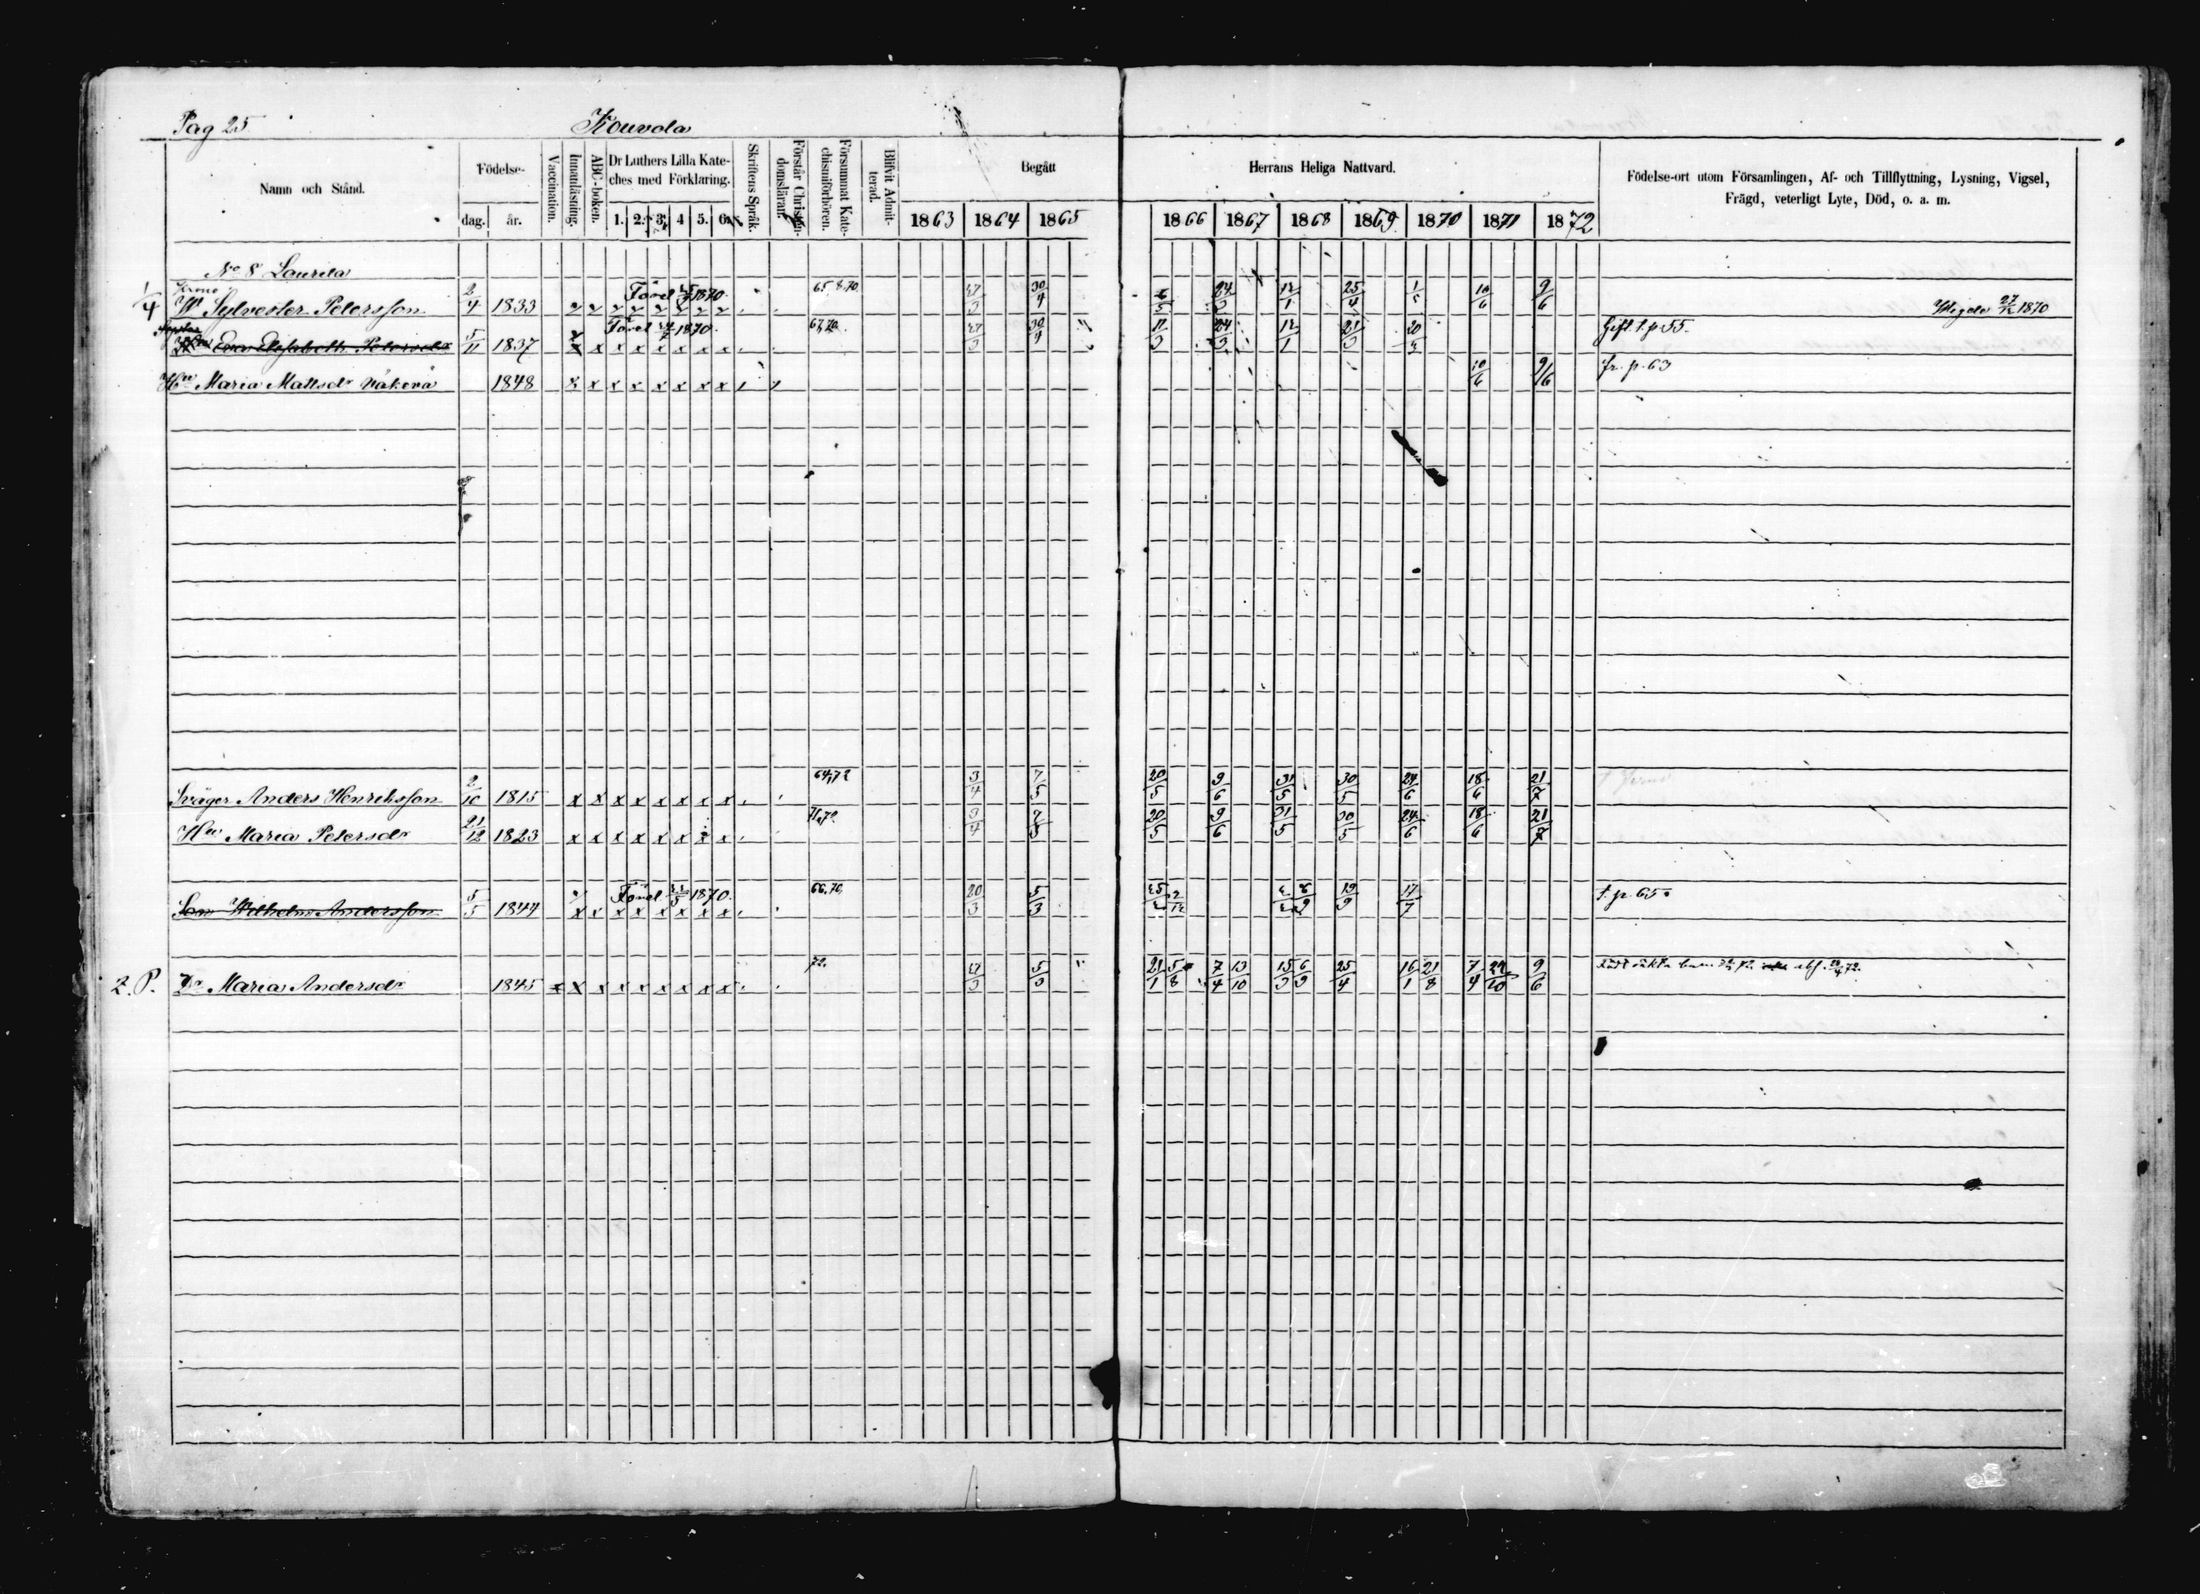 Pag 25 Kouvola
Namn och Stånd. Födelse- dag. år. Vaccination. Innanläsning. ABC-boken. Dr Luthers Lilla Kateches med Förklaring. 1. 2. 3. 4 5. 6. Skriftens Språk. Förstår Christendomsläran. Försummat Katechismiförhören. Blifvit Admitterad. Begått Herrans Heliga Nattvard. Födelse-ort utom Församlingen, Af- och Tillflyttning, Lysning, Vigsel, Frägd, veterligt Lyte, Död, o. a. m.
1863 1864 1865 1866 1867 1868 1869 1870 1871 1872
No 8 Laurila
1/4 Sylvester Petersson 2/4 1833 1870. 30/4 24/3 12/1 25/4 1/5 10/6 9/6 Wigde 27/12 1870
Eva Elisabeth Petersdr 5/11 1837 x x x x x x x x 1870. 67,70. 30/4 11/3 24/3 12/1 21/3 20/3 Gift t. p 55
Hu Maria Mattsdr 1848 x x x x x x x x 10/6 9/6 fr. p. 63
Sväger Anders Henriksson 2/10 1815 x x x x x x x x 64,72 3/4 7/5 20/5 9/6 31/5 30/5 24/6 18/6 21/7
Hu Maria Petersdr 21/12 1823 x x x x x x x x 3/4 7/5 20/5 9/6 31/5 30/5 24/6 18/6 21/7
Son Wilhelm Andersson 5/5 1844 x x x x x x x x 1870. 66,70, 20/3 5/3 19/9 17/7 t. p. 65.
2. P. Dr Maria Andersdr 1845 x x x x x x x x x 72. 5/3 21/1 5/8 7/4 13/10 15/3 6/9 25/4 16/1 21/8 7/4 9/6